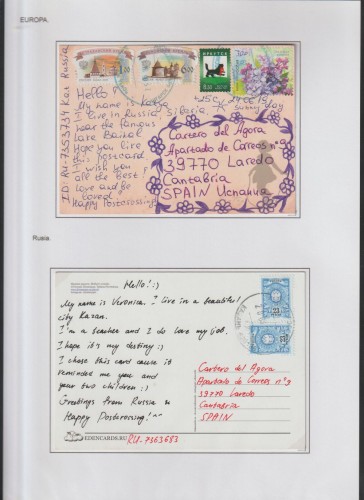 EUROPA.
ID: RU-7353734 Kat Russia
Hello!
My name is Katya
I live in Russia, Siberia
near the famous
lake Baikal
Hope you like
this postcard.
I wish you
all the best,
love and be
loved
Happy Postcrossing!
25°C
Sunny day
ИРКУТСК
Cartero del Agora
Apartado de Correos nº 9
39770 Laredo
Cantabria
SPAIN Испания
Rusia.
Hello!
My name is Veronica. I live in a beautiful
city Kazan.
I'm a teacher and I do love my job.
I hope it's my destiny :)
I chose this card cause it
reminded me you and
your two children :)
Greetings from Russia &
Happy Postcrossing! ^^
EDENCARDS.RU RU-7363683
Cartero del Agora
Apartado de Correos nº 9
39770 Laredo
Cantabria
SPAIN